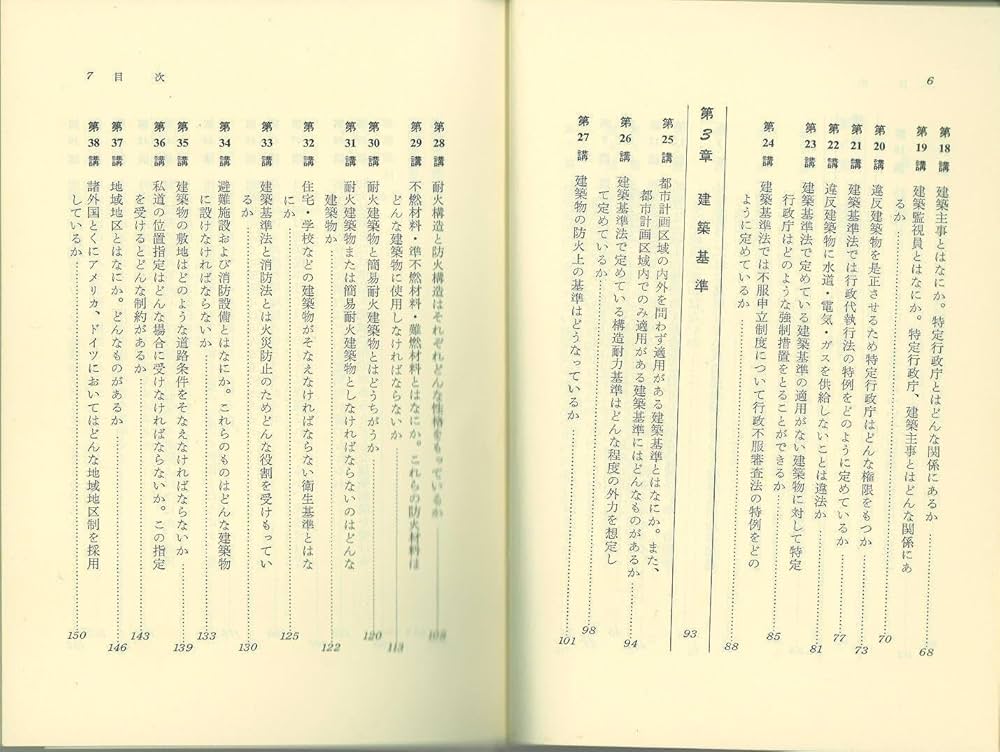 6
第18講 建築主事とはなにか。特定行政庁とはどんな関係にあるか……68
第19講 建築監視員とはなにか。特定行政庁、建築主事とはどんな関係にあ
るか……70
第20講 違反建築物を是正させるため特定行政庁はどんな権限をもつか……73
第21講 建築基準法では行政代執行法の特例をどのように定めているか……77
第22講 違反建築物に水道・電気・ガスを供給しないことは違法か……81
第23講 建築基準法で定めている建築基準の適用がない建築物に対して特定
行政庁はどのような強制措置をとることができるか……85
第24講 建築基準法では不服申立制度について行政不服審査法の特例をどの
ように定めているか……88
第3章 建築基準 93
第25講 都市計画区域の内外を問わず適用がある建築基準とはなにか。また、
都市計画区域内でのみ適用がある建築基準にはどんなものがあるか……94
第26講 建築基準法で定めている構造耐力基準はどんな程度の外力を想定し
て定めているか……98
第27講 建築物の防火上の基準はどうなっているか……101
7 目次
第28講 耐火構造と防火構造はそれぞれどんな性格をもっているか……
第29講 不燃材料・準不燃材料・難燃材料とはなにか。これらの防火材料は
どんな建築物に使用しなければならないか……113
第30講 耐火建築物と簡易耐火建築物とはどうちがうか……120
第31講 耐火建築物または簡易耐火建築物としなければならないのはどんな
建築物か……122
第32講 住宅・学校などの建築物がそなえなければならない衛生基準とはな
にか……125
第33講 建築基準法と消防法とは火災防止のためどんな役割を受けもってい
るか……130
第34講 避難施設および消防設備とはなにか。これらのものはどんな建築物
に設けなければならないか……133
第35講 建築物の敷地はどのような道路条件をそなえなければならないか……139
第36講 私道の位置指定はどんな場合に受けなければならないか。この指定
を受けるとどんな制約があるか……143
第37講 地域地区とはなにか。どんなものがあるか……146
第38講 諸外国とくにアメリカ、ドイツにおいてはどんな地域地区制を採用
しているか……150